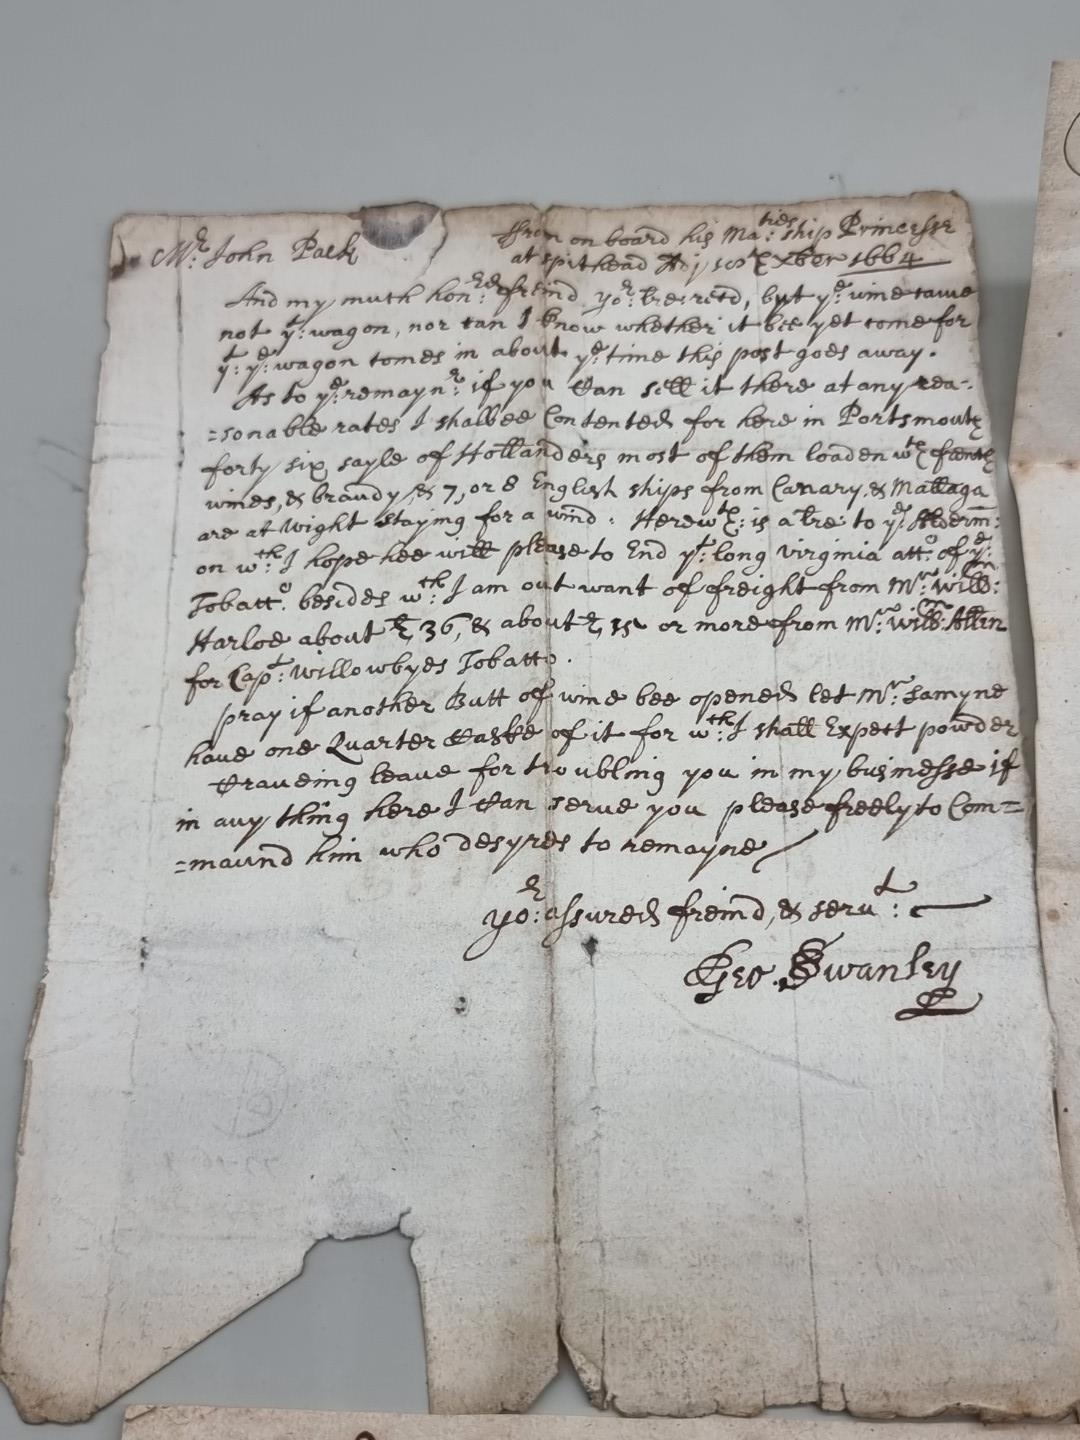 Mr: John Pack
from on board his Ma:ties ship Princesse
at spithead Adj xber 1664
And my much honrd freind yor: lre recd, but ye wine came
not yt: wagon, nor can I know whether it bee yet come for
yt: ye: wagon comes in about ye time this post goes away.
As to ye: remaynr: if you can sell it there at any rea-
=sonable rates I shalbee Contented for here in Portsmouth
forty six sayle of Hollanders most of them loaden wth french
wines, & brandy, & 7, or 8 English ships from Canary, & Mallaga
are at Wight staying for a wind: Herewth: is a lre: to ye: Alderm:
on wch: I hope hee will please to End yt: long virginia acco: of ye:
Tobacco: besides wch: I am out want of freight from Mr: Will:m
Harloe about £, 36, & about £, 15 or more from Mr: Will:m Allen
for Capt: Willowbyes Tobacco.
pray if another Butt of wine bee opened let Mr: Lamyne
have one Quarter Caske of it for wch: I shall Expect powder
Craveing leave for troubling you in my businesse if
in any thing here I Can serve you please freely to Com=
=maund him who desyres to remayne
yor: assured freind, & servt:
Geo. Swanley